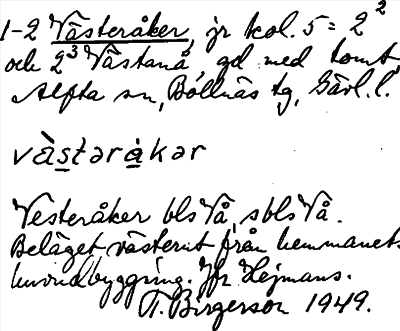 1-2 Västeråker, jr kol. 5 = 2²
och 2³ Västanå, gd med tomt,
Alfta sn, Bollnäs tg, Gävl. l.
vàs̲tərå̲kər
Vesteråker bls Vå, sbls Vå.
Beläget västerut från hemmanets
huvudbyggning. Jfr Hejmans.
T. Birgerson 1949.